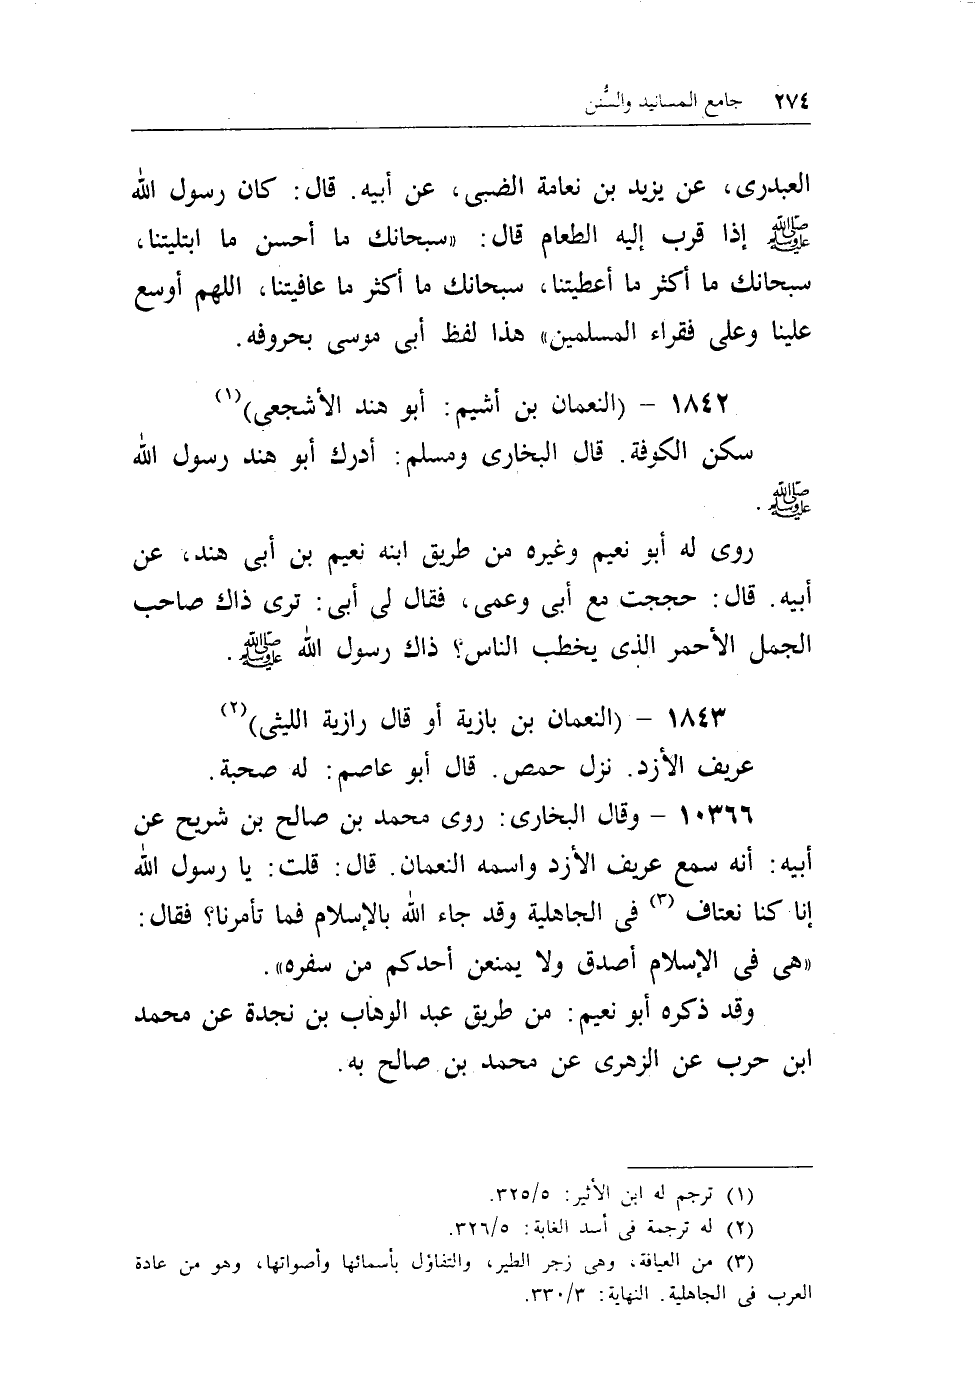 ٢٧٤ جامع المسانيد والسُّنن
العبدرى، عن يزيد بن نعامة الضبى، عن أبيه. قال: كان رسول الله
ﷺ إذا قرب إليه الطعام قال: «سبحانك ما أحسن ما ابتليتنا،
سبحانك ما أكثر ما أعطيتنا، سبحانك ما أكثر ما عافيتنا، اللهم أوسع
علينا وعلى فقراء المسلمين» هذا لفظ أبى موسى بحروفه.
١٨٤٢ – (النعمان بن أشيم: أبو هند الأشجعى)(١)
سكن الكوفة. قال البخارى ومسلم: أدرك أبو هند رسول الله
ﷺ.
روى له أبو نعيم وغيره من طريق ابنه نعيم بن أبى هند، عن
أبيه. قال: حججت مع أبى وعمى، فقال لى أبى: ترى ذاك صاحب
الجمل الأحمر الذى يخطب الناس؟ ذاك رسول الله ﷺ.
١٨٤٣ – (النعمان بن بازية أو قال رازية الليثى)(٢)
عريف الأزد. نزل حمص. قال أبو عاصم: له صحبة.
١٠٣٦٦ – وقال البخارى: روى محمد بن صالح بن شريح عن
أبيه: أنه سمع عريف الأزد واسمه النعمان. قال: قلت: يا رسول الله
إنا كنا نعتاف (٣) فى الجاهلية وقد جاء الله بالإسلام فما تأمرنا؟ فقال:
«هى فى الإسلام أصدق ولا يمنعن أحدكم من سفره».
وقد ذكره أبو نعيم: من طريق عبد الوهاب بن نجدة عن محمد
ابن حرب عن الزهرى عن محمد بن صالح به.
(١) ترجم له ابن الأثير: ٣٢٥/٥.
(٢) له ترجمة فى أسد الغابة: ٣٢٦/٥.
(٣) من العيافة، وهى زجر الطير، والتفاؤل بأسمائها وأصواتها، وهو من عادة
العرب فى الجاهلية. النهاية: ٣٣٠/٣.